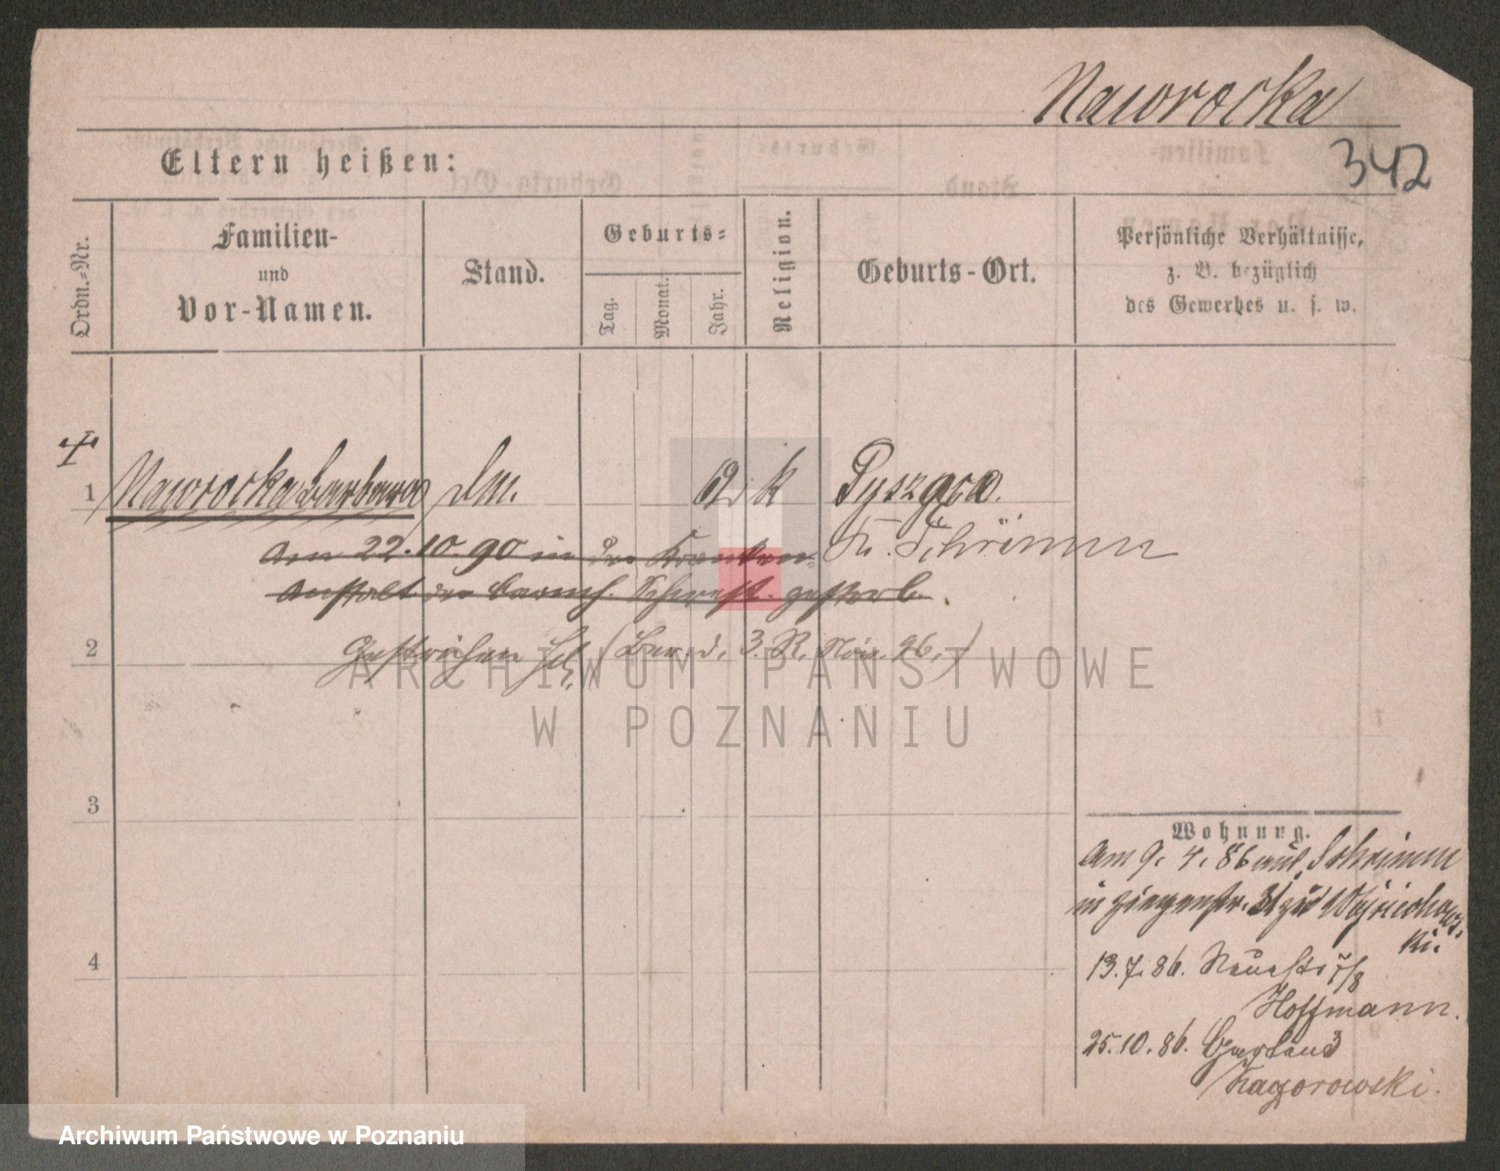 Nawrocka
342
Eltern heißen:
Ordn.-Nr.
Familien-
und
Vor-Namen.
Stand.
Geburts-
Tag.
Monat.
Jahr.
Religion.
Geburts-Ort.
Persönliche Verhältnisse,
z. B. bezüglich
des Gewerbes u. s. w.
1 Nawrocka Barbara dm. k Pysząca.
am 22.10 90 in der Kranken- Kr. Schrimm
Anstalt der barmh. Schwest. gestorb.
2 Gestrichen (Bur. d. 3. R. Nov. 96.)
3
4
Wohnung.
am 9. 4. 86 aus Schrimm
in Ziegenstr. 31 zu Wojciechows-
ki.
13.7.86. Neuestr 7/8
Hoffmann.
25.10.86.
Zagorowski.
ARCHIWUM PAŃSTWOWE
W POZNANIU
Archiwum Państwowe w Poznaniu